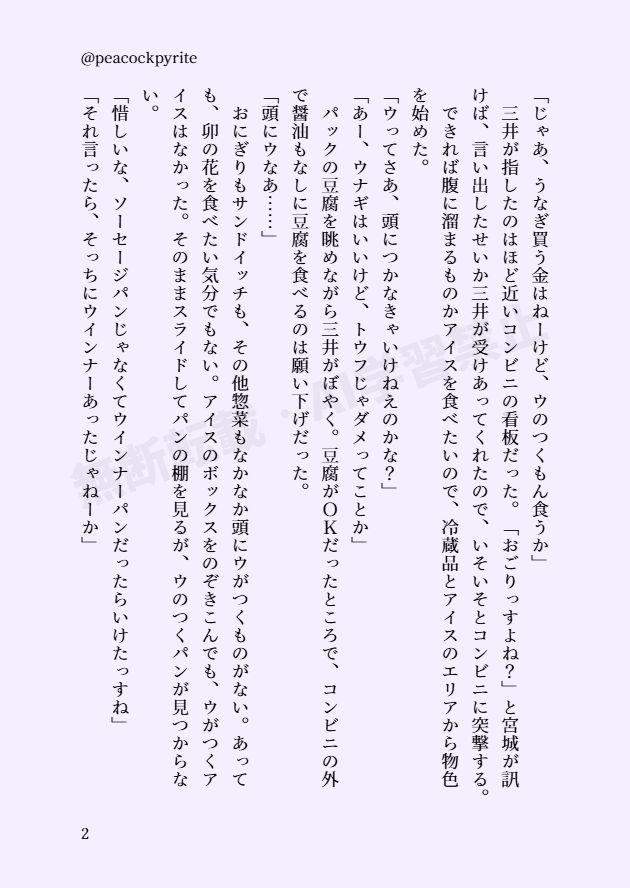 @peacockpyrite
「じゃあ、うなぎ買う金はねーけど、ウのつくもん食うか」
　三井が指したのはほど近いコンビニの看板だった。「おごりっすよね？」と宮城が訊
けば、言い出したせいか三井が受けあってくれたので、いそいそとコンビニに突撃する。
　できれば腹に溜まるものかアイスを食べたいので、冷蔵品とアイスのエリアから物色
を始めた。
「ウってさあ、頭につかなきゃいけねえのかな？」
「あー、ウナギはいいけど、トウフじゃダメってことか」
　パックの豆腐を眺めながら三井がぼやく。豆腐がＯＫだったところで、コンビニの外
で醤油もなしに豆腐を食べるのは願い下げだった。
「頭にウなあ……」
　おにぎりもサンドイッチも、その他惣菜もなかなか頭にウがつくものがない。あって
も、卯の花を食べたい気分でもない。アイスのボックスをのぞきこんでも、ウがつくア
イスはなかった。そのままスライドしてパンの棚を見るが、ウのつくパンが見つからな
い。
「惜しいな、ソーセージパンじゃなくてウインナーパンだったらいけたっすね」
「それ言ったら、そっちにウインナーあったじゃねーか」
無断転載・AI学習禁止
2